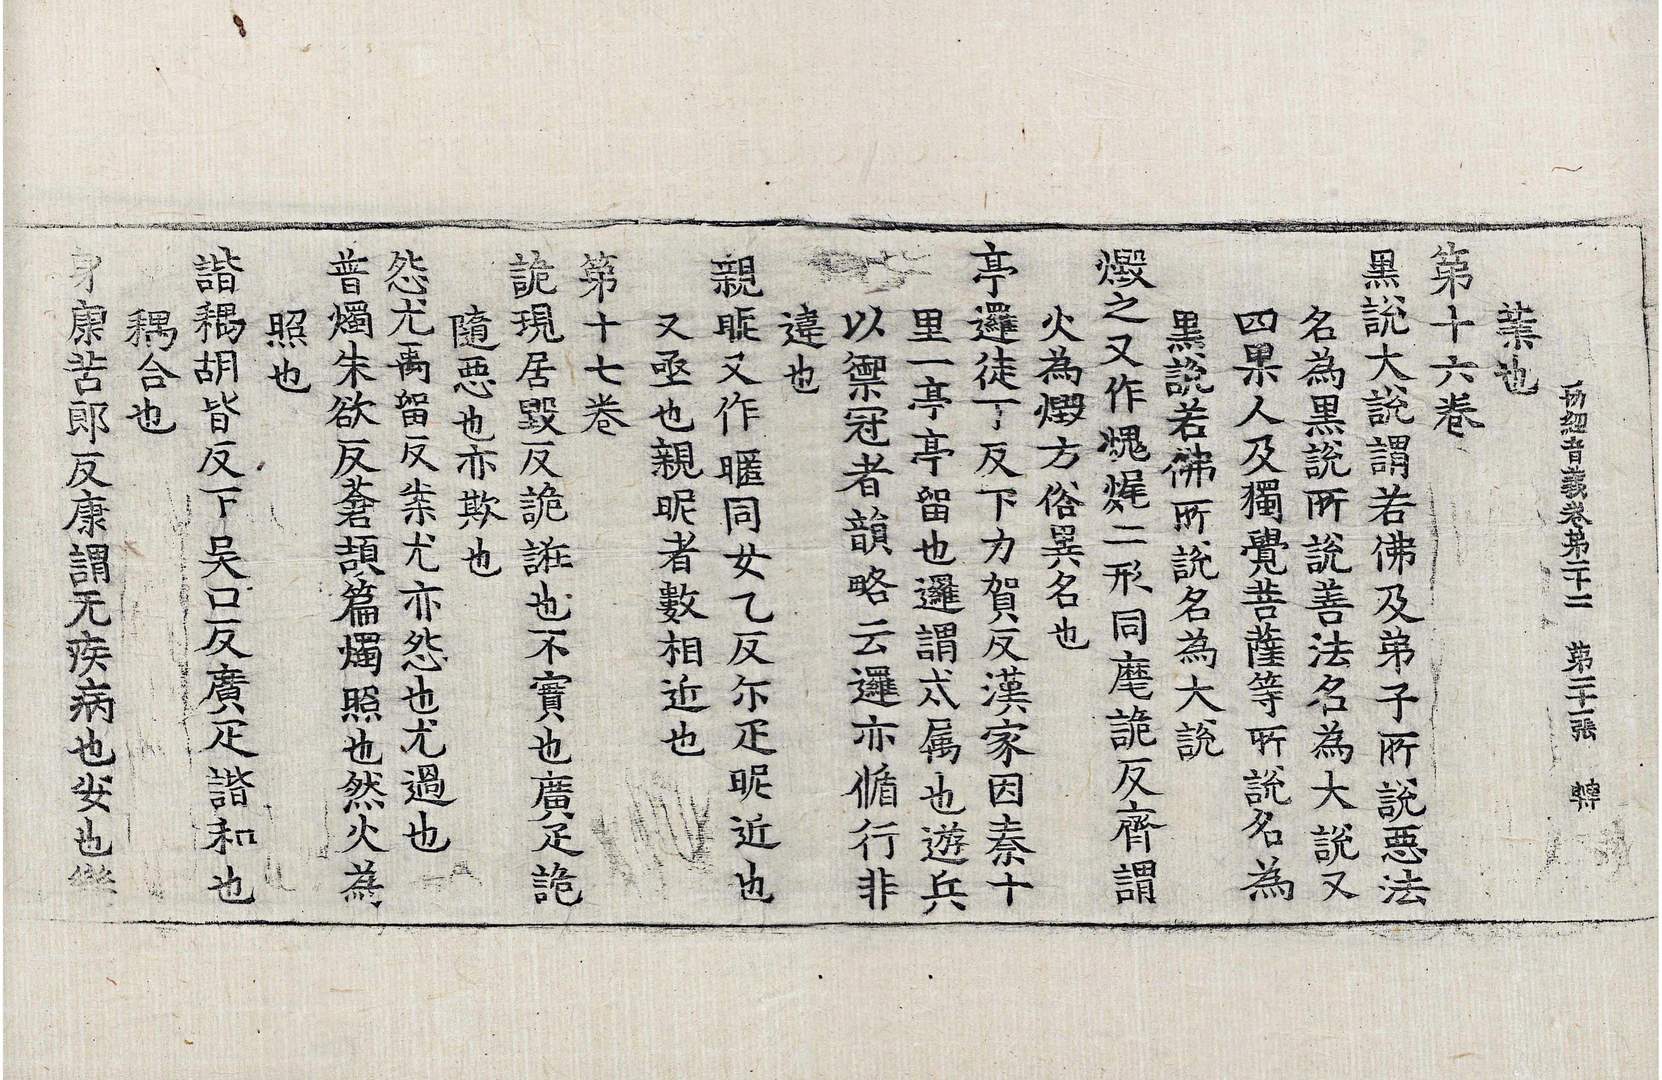 切經音義卷第二十二 第二十一張 轉
業也
第十六卷
黑說大說謂若佛及弟子所說惡法
名為黑說所說善法名為大說又
四果人及獨覺菩薩等所說名為
黑說若佛所說名為大說
燬之又作塊㷄二形同麾詭反齊謂
火為燬方俗異名也
亭邏徒丁反下力賀反漢家因秦十
里一亭亭留也邏謂忒属也遊兵
以禦冦者韻略云邏亦循行非
違也
親昵又作暱同女乙反尒疋昵近也
又亟也親昵者數相近也
第十七卷
詭現居毀反詭誑也不實也廣疋詭
隨惡也亦欺也
怨尤禹留反案尤亦怨也尤過也
普燭朱欲反蒼頡篇燭照也然火為
照也
諧耦胡皆反下吴口反廣疋諧和也
耦合也
身康苦郎反康謂无疾病也安也樂